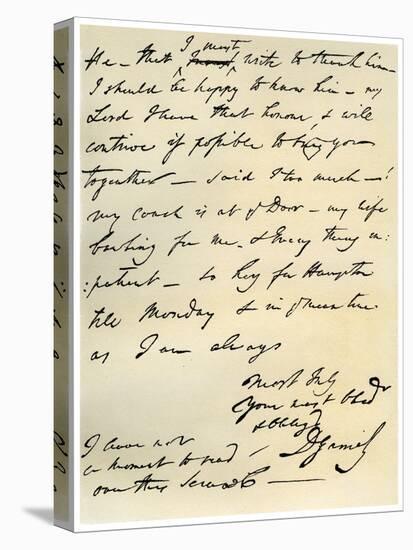 He – that I must write to thank him –
I should be happy to know him – my
Lord I have that honour, & will
contrive if possible to bring you
together – said I too much – !
my coach is at ye Door – my wife
bawling for me. & Every thing im:
:patient – so Hey for Hampton
till Monday & in ye mean time
as I am always
Most truly
Your most Obdt
& obliged
D Garrick
I have not
a moment to read
over this Scrawl –